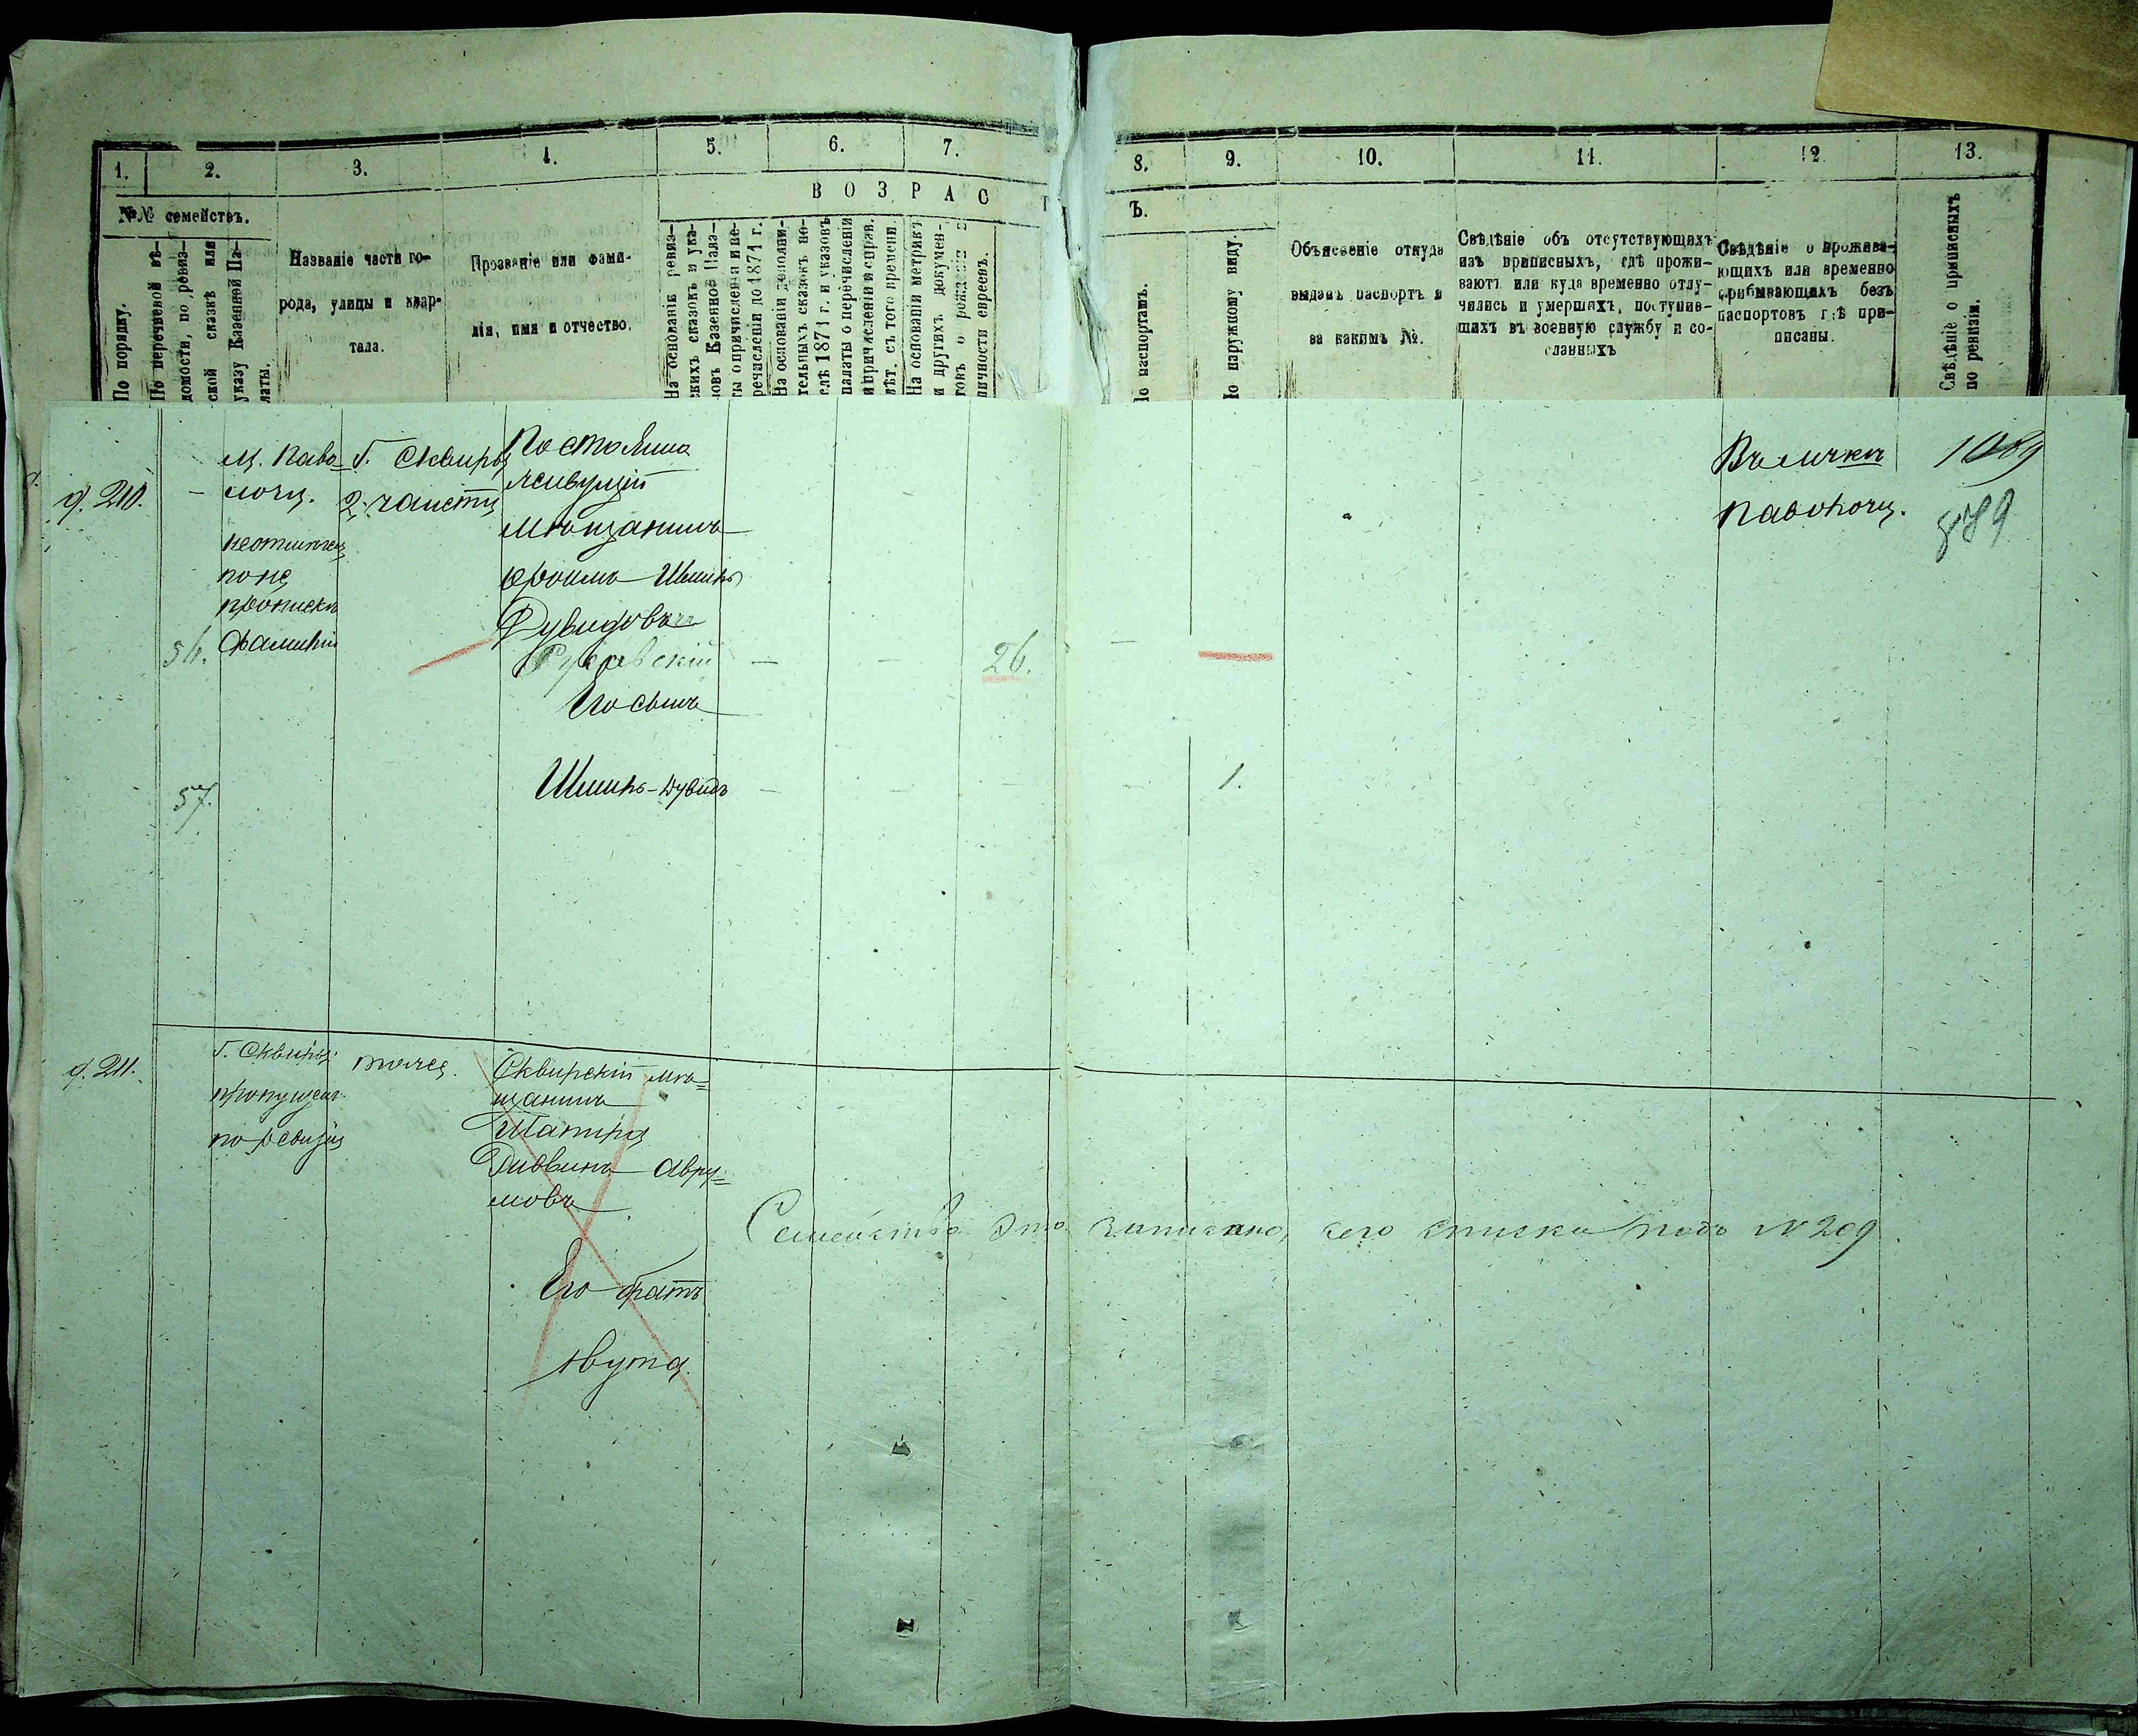 1. 2. 3. 4. 5. 6. 7. 8. 9. 10. 11. 12. 13.
В О З Р А С Т Ъ.
№№ семействъ.
По порядку.
По перечневой вѣ-
домости, по ревиз-
ской сказкѣ или
указу Казенной Па-
латы.
Названіе части го-
рода, улицы и квар-
тала.
Прозваніе или фами-
лія, имя и отчество.
На основаніи ревиз-
скихъ сказокъ и ука-
зовъ Казенной Пала-
ты о причисленіи и пе-
речисленіи до 1871 г.
На основаніи дополни-
тельныхъ сказокъ по-
слѣ 1871 г. и указовъ
палаты о перечисленіи
и причисленіи и справ.
лѣт. съ того времени.
На основаніи метрикъ
и другихъ докумен-
товъ о рожденіи и
личности евреевъ.
По паспортамъ.
По наружному виду.
Объясненіе откуда
выданъ паспортъ и
за какимъ №.
Свѣдѣніе объ отсутствующихъ
изъ приписныхъ, гдѣ прожи-
ваютъ или куда временно отлу-
чились и умершихъ, поступив-
шихъ въ военную службу и со-
сланныхъ
Свѣдѣніе о прожива-
ющихъ или временно
прибывающихъ безъ
паспортовъ гдѣ при-
писаны.
Свѣдѣніе о приписныхъ
по ревизіи.
210.
м. Паво-
лочи.
фамиліи
56.
г. Сквиры
2 части
Постоянно
живущій
мѣщанинъ
Фроимъ Шмиль
Дувидовъ
26.
Его сынъ
57.
Шмиль-Дувидъ
1.
Паволочи.
1089
211.
г. Сквиры
пропущен.
по ревизіи
тоже
Сквирскій мѣ-
щанинъ
Шапира
Авру-
мовъ
Его братъ
Семейство это записано, сего списка подъ № 209